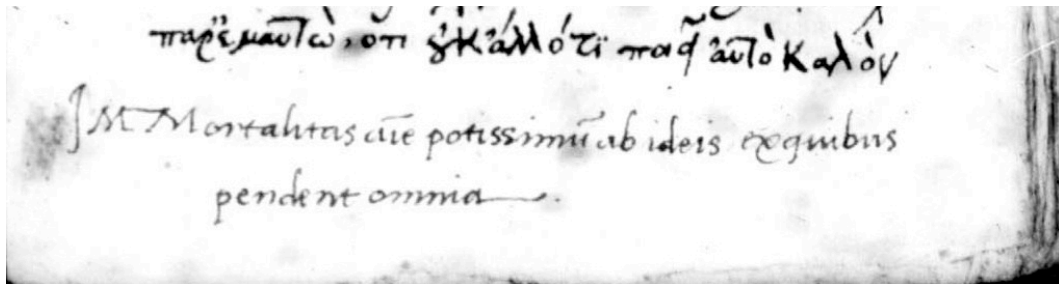 παρ' ἐμαυτῶ, ὅτι οὐκ ἄλλό τϊ ποιεῖ αὐτὸ καλὸν
IMMortalitas aīe potissimū ab ideis ex quibus
pendent omnia